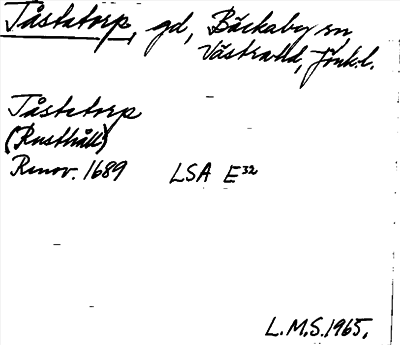 Tåstatorp, gd, Bäckaby sn
Västra hd, Jönk.l.
Tåstetorp
(Rusthåll)
Renov. 1689 LSA E32
L.M.S. 1965.